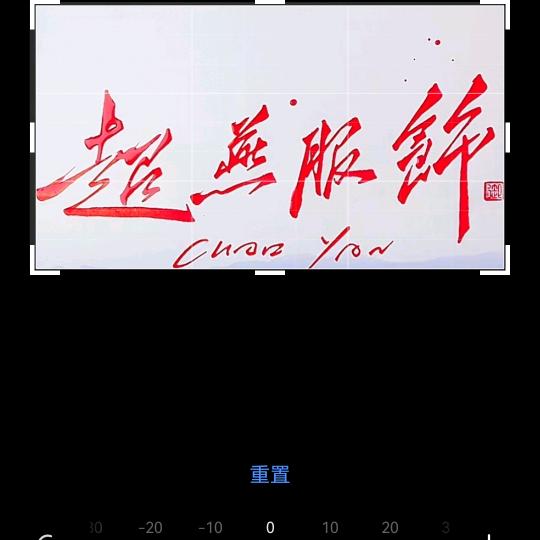 超燕服飾
Chao Yan
重置
-20 -10 0 10 20 3